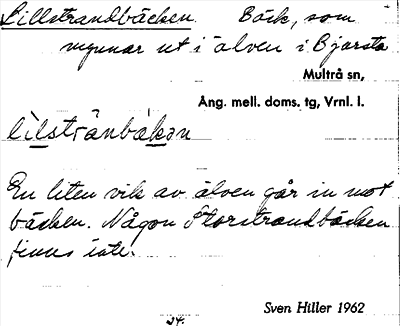 Lillstrandbäcken Bäck, som
mynnar ut i älven i Bjärsta
Multrå sn,
Ång. mell. doms. tg, Vrnl. l.
lilstránbäkən
En liten vik av älven går in mot
bäcken. Någon Storstrandbäcken
finns inte.
Sven Hiller 1962
24.